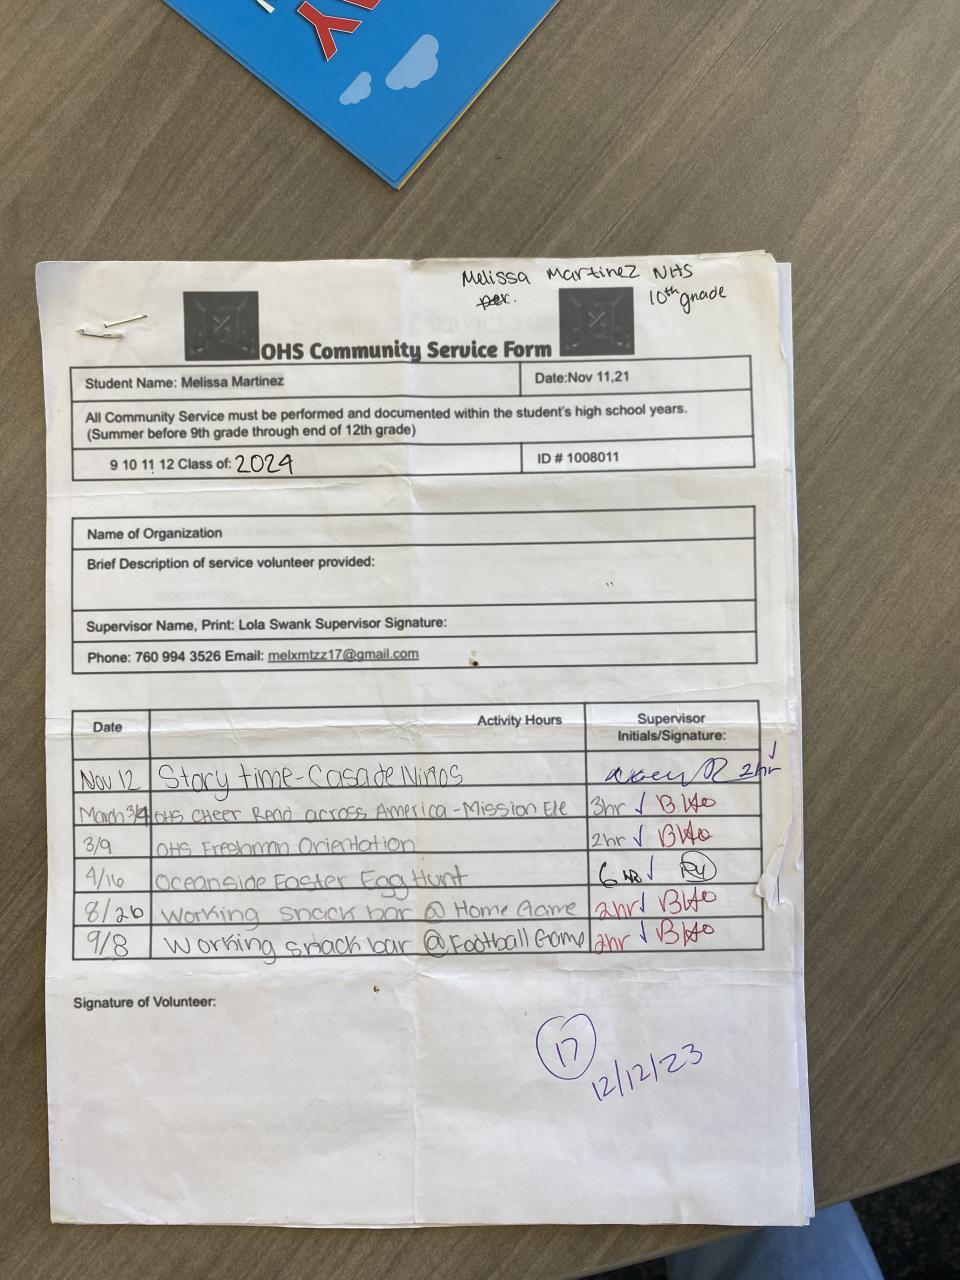 Y
Melissa Martinez NHS
per.
10th grade
OHS Community Service Form
Student Name: Melissa Martinez
Date:Nov 11,21
All Community Service must be performed and documented within the student's high school years.
(Summer before 9th grade through end of 12th grade)
9 10 11 12 Class of: 2024
ID # 1008011
Name of Organization
Brief Description of service volunteer provided:
Supervisor Name, Print: Lola Swank Supervisor Signature:
Phone: 760 994 3526 Email: melxmtzz17@gmail.com
Date Activity Hours Supervisor
Initials/Signature:
Nov 12 Story time-Casa de Niños 2hr
March 3/4 OHS Cheer Read across America-Mission Ele 3hr
3/9 OHS Freshman Orientation 2hr
4/16 Oceanside Easter Egg Hunt 6
8/26 Working snack bar @ Home Game 2hr
9/8 Working snack bar @ Football Game 2hr
Signature of Volunteer:
17
12/12/23